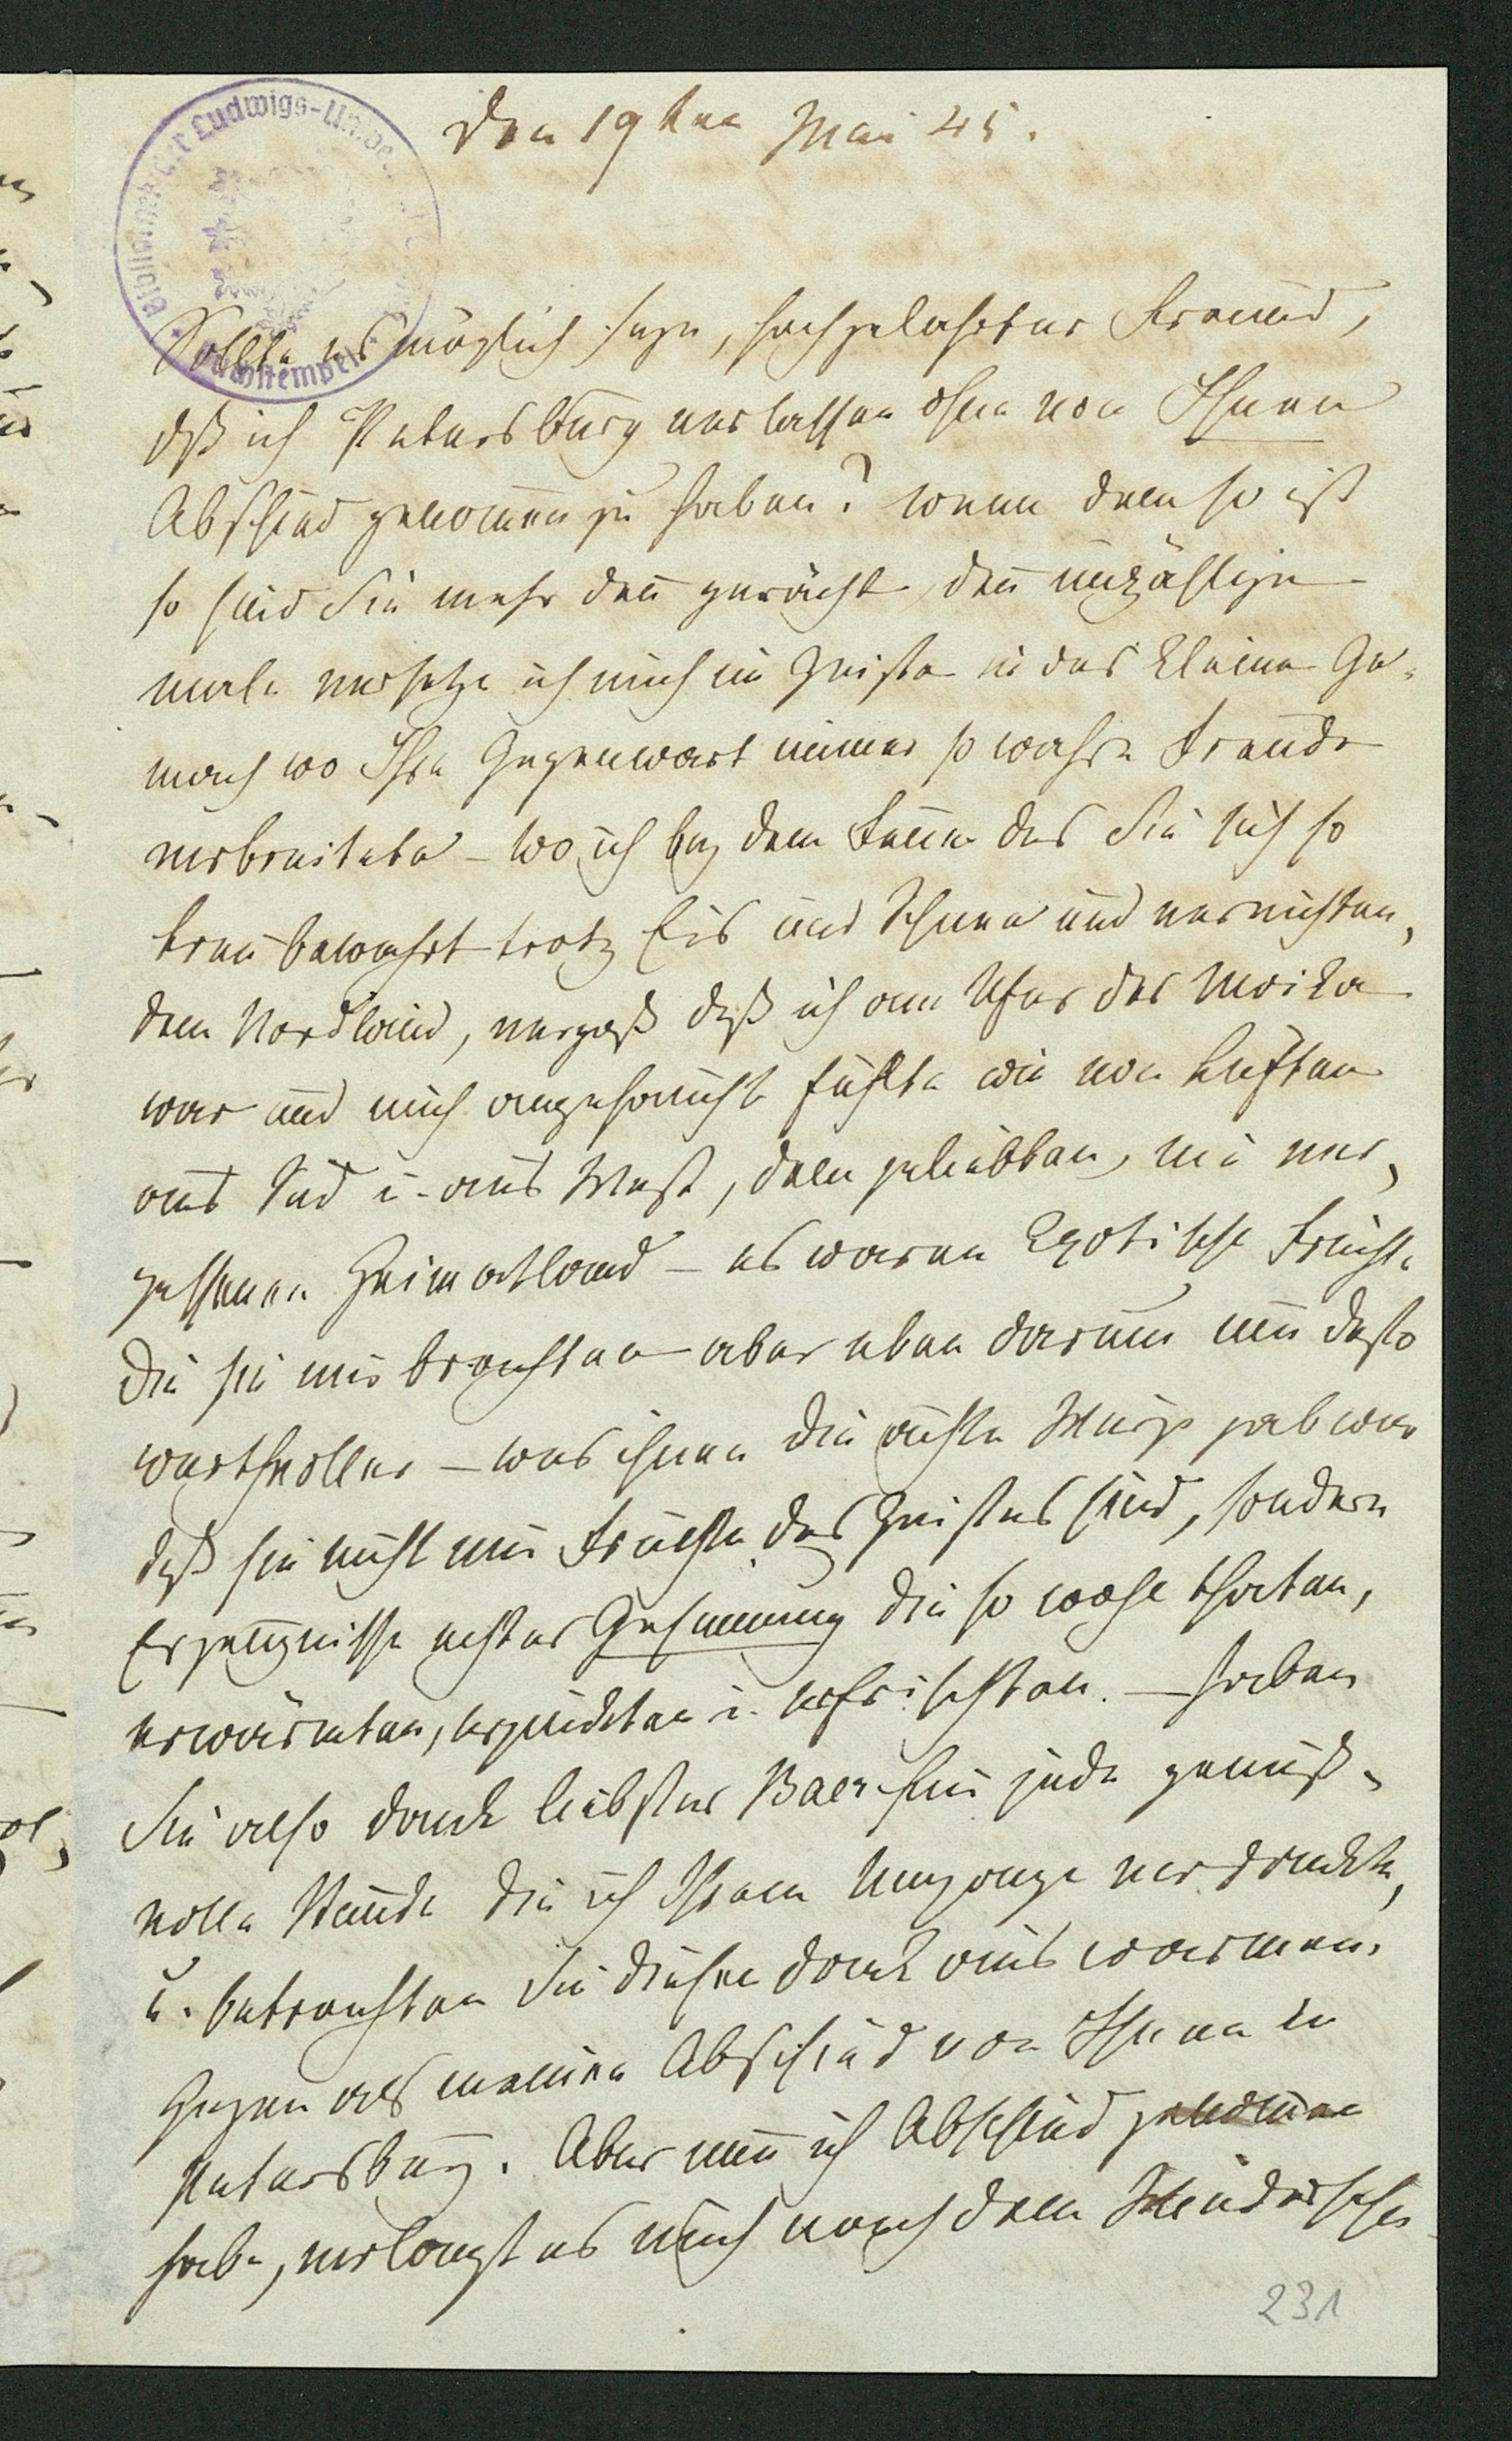 Den 19ten Mai 45.
Sollte es möglich seyn, hochgelahrter Freund,
dß ich Petersburg verlassen ohne von Ihnen
Abschied genomen zu haben? wenn dem so ist
so sind Sie mehr den gerächt den unzählige
male versetze ich mich im Geiste in das kleine Ge-
mach wo Ihre Gegenwart immer so wahre Freude
verbreitete – wo ich bey dem Feuer das Sie sich so
treu bewahrt trotz Eis und Schnee und vernichten,
dem Nordwind, vergaß daß ich am Ufer der Moika
war und mich angehaucht fühlte wie von Lüften
aus Süd u. aus West, dem geliebten, nie ver,
gessenen Heimatland – es waren Exotische Früchte
die sie mir brachten aber eben darum um desto
werthvoller – was ihnen die ächte Würze gab war
daß sie nicht nur Früchte des Geistes sind, sondern
Erzeugnisse ächter Gesinnung die so wohl thaten,
erwärmten, erquickten u. erfrischten. – haben
Sie also dank liebster Baer für jede genuß-
volle Stunde die ich Ihrem Umgange verdankte,
u. betrachten Sie diesen dank aus warmen
Herzen als meinen Abschied von Ihnen in
Petersburg. Aber nun ich Abschied genomen
habe, verlangt es mich nach dem Wiedersehen
231
Ludwigs-